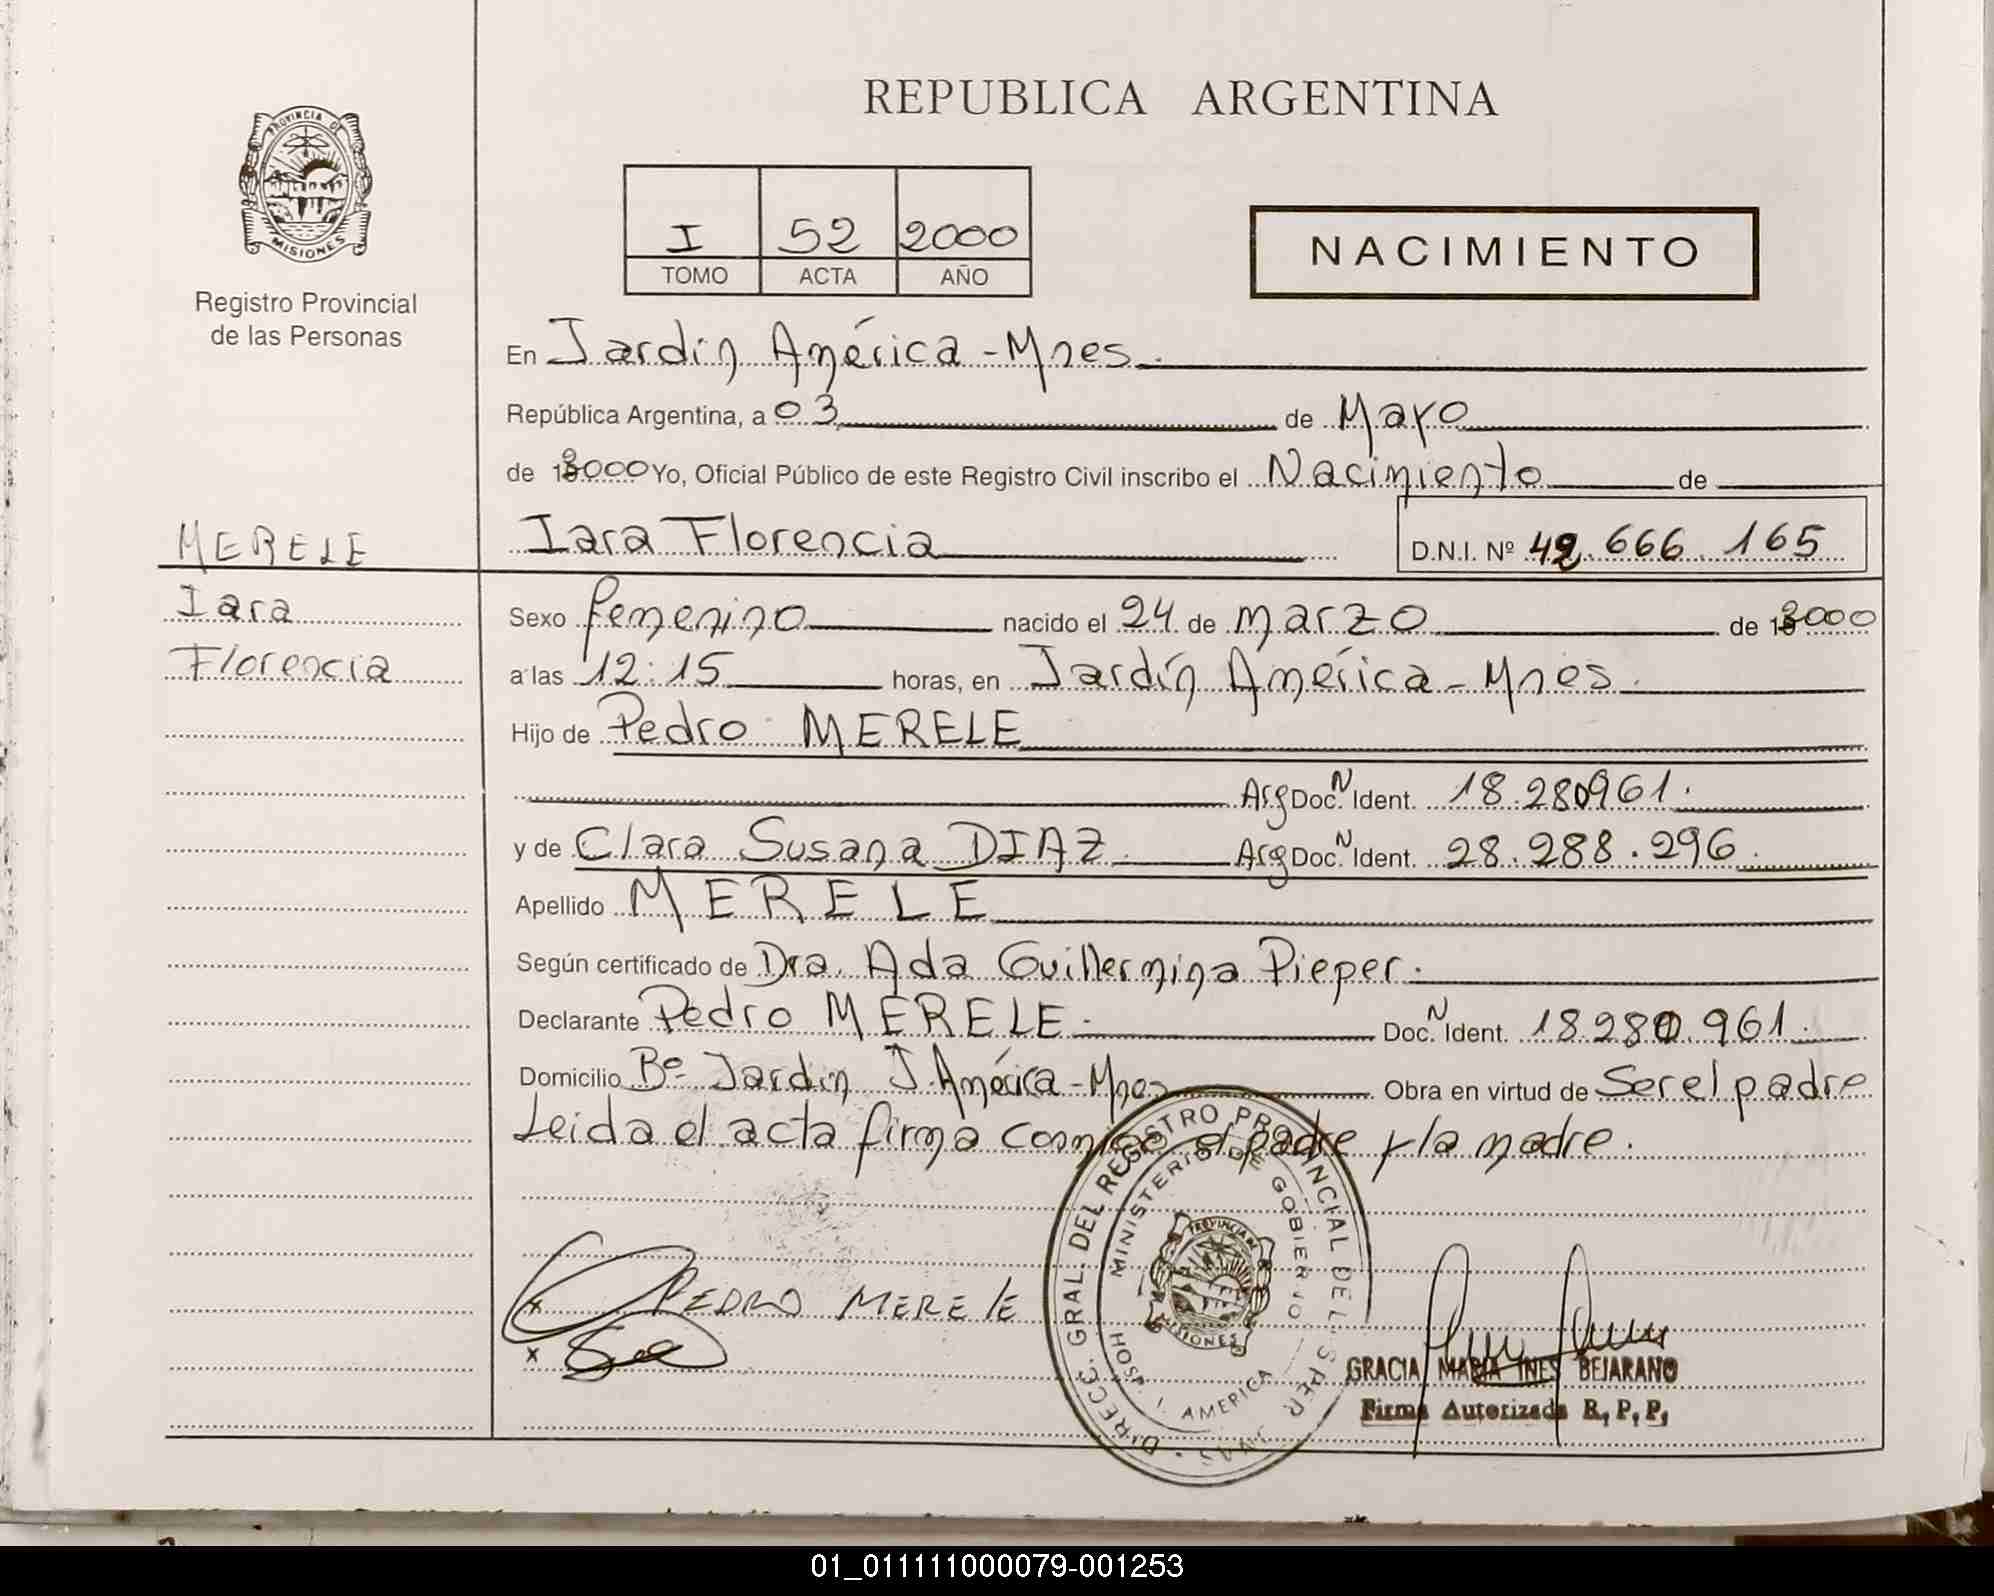 REPUBLICA ARGENTINA
PROVINCIA DE
MISIONES
Registro Provincial
de las Personas
I 52 2000
TOMO ACTA AÑO
NACIMIENTO
En Jardín América - Mnes.
República Argentina, a 03 de Mayo
de 2000 Yo, Oficial Público de este Registro Civil inscribo el Nacimiento de
MERELE
Iara Florencia D.N.I. Nº 42.666.165
Iara
Florencia
Sexo femenino nacido el 24 de marzo de 2000
a las 12:15 horas, en Jardín América - Mnes.
Hijo de Pedro MERELE
Arg Doc. N Ident. 18.280961.
y de Clara Susana DIAZ Arg Doc. N Ident. 28.288.296.
Apellido MERELE
Según certificado de Dra. Ada Guillermina Pieper.
Declarante Pedro MERELE. Doc. N Ident. 18.280.961.
Domicilio Bº Jardin J. América - Mnes Obra en virtud de Ser el padre
Leida el acta firma conmigo el padre y la madre.
DIRECC. GRAL. DEL REGISTRO PROVINCIAL DE L
MINISTERIO DE GOBIERNO
PROVINCIA DE
MISIONES
AMERICA
x PEDRO MERELE
x
GRACIA MARIA INES BEJARANO
Firma Autorizada R, P, P,
01_011111000079-001253